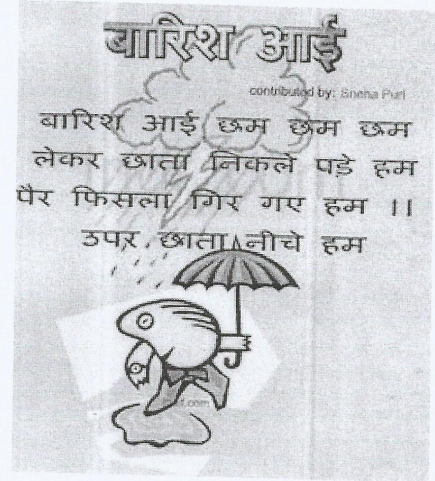 बारिश आई
contributed by: Sneha Puri
बारिश आई छम छम छम
लेकर छाता निकले पड़े हम
पैर फिसला गिर गए हम ।।
उपर छाता नीचे हम
.com